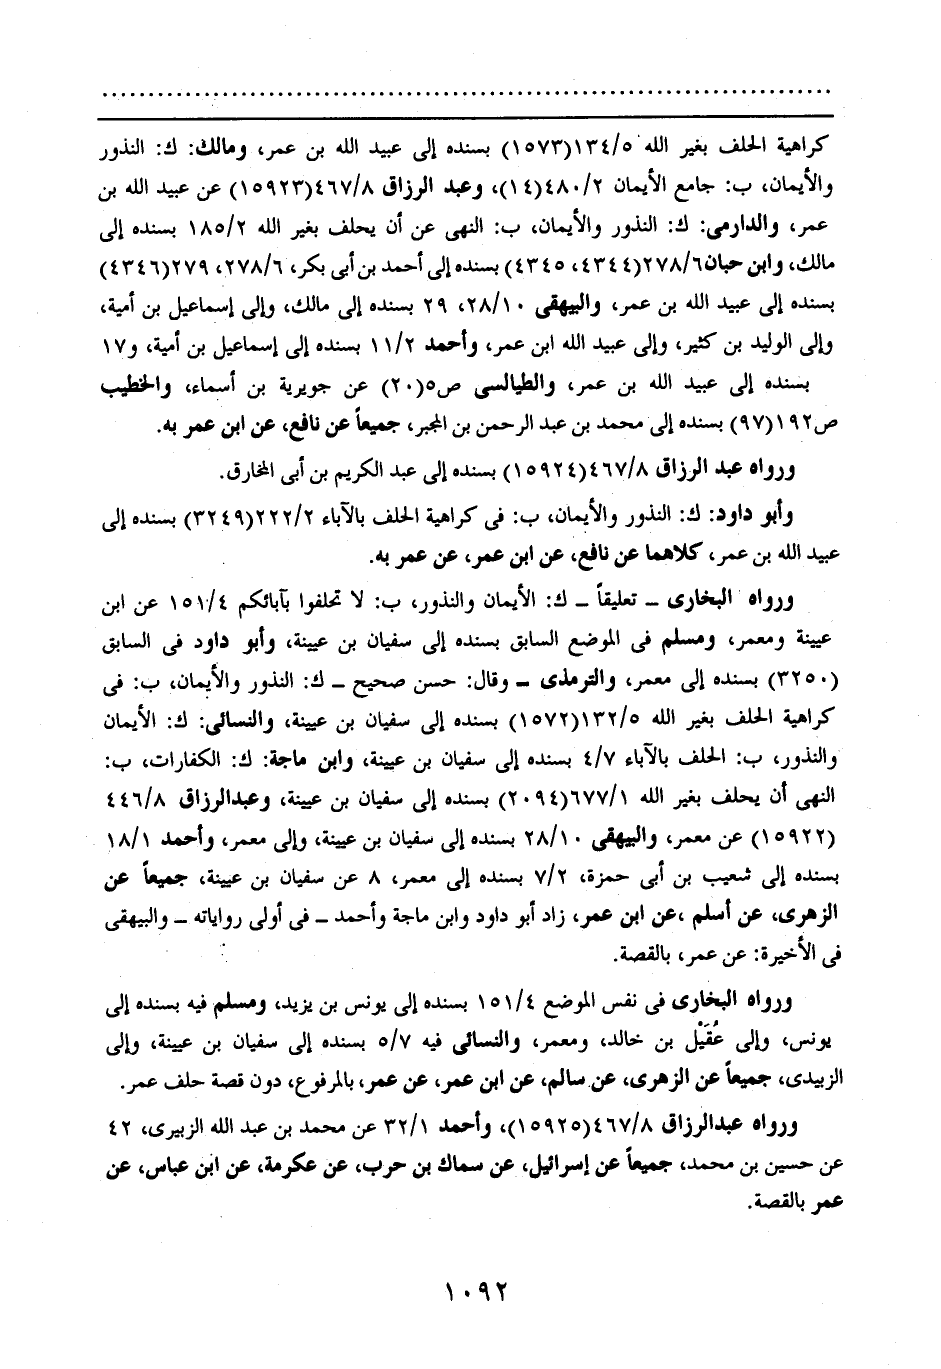 كراهية الحلف بغير الله ١٣٤/٥(١٥٧٣) بسنده إلى عبيد الله بن عمر، ومالك: ك: النذور
والأيمان، ب: جامع الأيمان ٤٨٠/٢(١٤)، وعبد الرزاق ٤٦٧/٨(١٥٩٢٣) عن عبيد الله بن
عمر، والدارمى: ك: النذور والأيمان، ب: النهى عن أن يحلف بغير الله ١٨٥/٢ بسنده إلى
مالك، وابن حبان٢٧٨/٦(٤٣٤٤، ٤٣٤٥) بسنده إلى أحمد بن أبى بكر، ٢٧٨/٦، ٢٧٩(٤٣٤٦)
بسنده إلى عبيد الله بن عمر، والبيهقى ٢٨/١٠، ٢٩ بسنده إلى مالك، وإلى إسماعيل بن أمية،
وإلى الوليد بن كثير، وإلى عبيد الله ابن عمر، وأحمد ١١/٢ بسنده إلى إسماعيل بن أمية، و١٧
بسنده إلى عبيد الله بن عمر، والطيالسى ص٥(٢٠) عن جويرية بن أسماء، والخطيب
ص١٩٢(٩٧) بسنده إلى محمد بن عبد الرحمن بن المجبر، جميعاً عن نافع، عن ابن عمر به.
ورواه عبد الرزاق ٤٦٧/٨(١٥٩٢٤) بسنده إلى عبد الكريم بن أبى المخارق.
وأبو داود: ك: النذور والأيمان، ب: فى كراهية الحلف بالآباء ٢٢٢/٢(٣٢٤٩) بسنده إلى
عبيد الله بن عمر، كلاهما عن نافع، عن ابن عمر، عن عمر به.
ورواه البخارى ــ تعليقاً ــ ك: الأيمان والنذور، ب: لا تحلفوا بآبائكم ١٥١/٤ عن ابن
عيينة ومعمر، ومسلم فى الموضع السابق بسنده إلى سفيان بن عيينة، وأبو داود فى السابق
(٣٢٥٠) بسنده إلى معمر، والترمذى ــ وقال: حسن صحيح ــ ك: النذور والأيمان، ب: فى
كراهية الحلف بغير الله ١٣٢/٥(١٥٧٢) بسنده إلى سفيان بن عيينة، والنسائى: ك: الأيمان
والنذور، ب: الحلف بالآباء ٤/٧ بسنده إلى سفيان بن عيينة، وابن ماجة: ك: الكفارات، ب:
النهى أن يحلف بغير الله ٦٧٧/١(٢٠٩٤) بسنده إلى سفيان بن عيينة، وعبدالرزاق ٤٤٦/٨
(١٥٩٢٢) عن معمر، والبيهقى ٢٨/١٠ بسنده إلى سفيان بن عيينة، وإلى معمر، وأحمد ١٨/١
بسنده إلى شعيب بن أبى حمزة، ٧/٢ بسنده إلى معمر، ٨ عن سفيان بن عيينة، جميعاً عن
الزهرى، عن أسلم ،عن ابن عمر، زاد أبو داود وابن ماجة وأحمد ــ فى أولى رواياته ــ والبيهقى
فى الأخيرة: عن عمر، بالقصة.
ورواه البخارى فى نفس الموضع ١٥١/٤ بسنده إلى يونس بن يزيد، ومسلم فيه بسنده إلى
يونس، وإلى عُقَيْل بن خالد، ومعمر، والنسائى فيه ٥/٧ بسنده إلى سفيان بن عيينة، وإلى
الزبيدى، جميعاً عن الزهرى، عن سالم، عن ابن عمر، عن عمر، بالمرفوع، دون قصة حلف عمر.
ورواه عبدالرزاق ٤٦٧/٨(١٥٩٢٥)، وأحمد ٣٢/١ عن محمد بن عبد الله الزبيرى، ٤٢
عن حسين بن محمد، جميعاً عن إسرائيل، عن سماك بن حرب، عن عكرمة، عن ابن عباس، عن
عمر بالقصة.
١٠٩٢